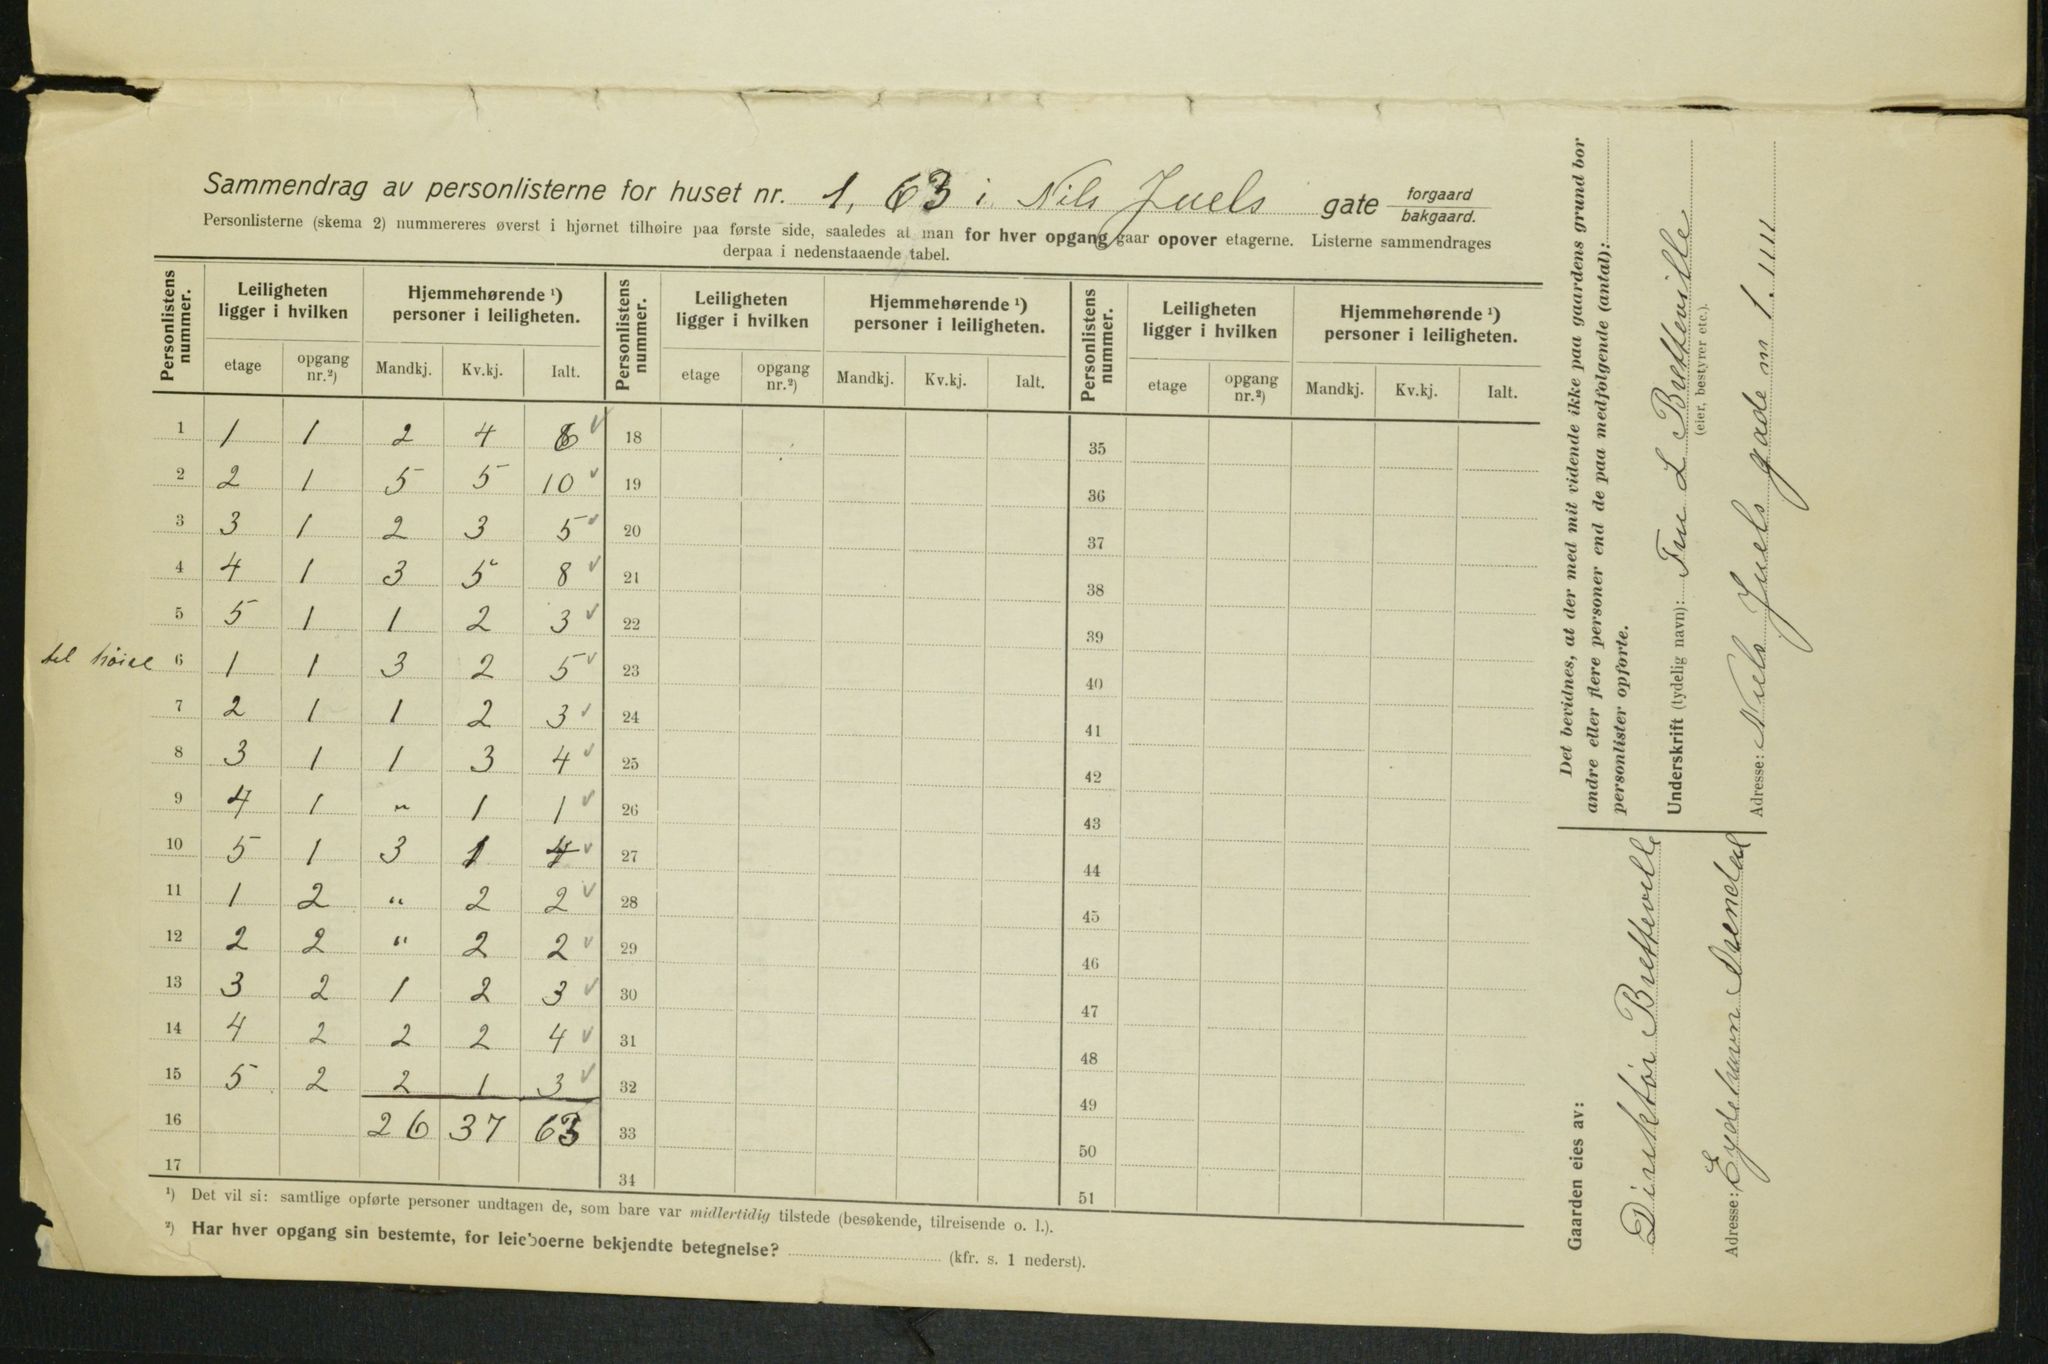 Sammendrag av personlisterne for huset nr. 1, 63 i Nils Juels gate forgaard bakgaard.
Personlisterne (skema 2) nummereres øverst i hjørnet tilhøire paa første side, saaledes at man for hver opgang gaar opover etagerne. Listerne sammendrages
derpaa i nedenstaaende tabel.
Personlistens nummer. Leiligheten ligger i hvilken Hjemmehørende ¹) personer i leiligheten. Personlistens nummer. Leiligheten ligger i hvilken Hjemmehørende ¹) personer i leiligheten. Personlistens nummer. Leiligheten ligger i hvilken Hjemmehørende ¹) personer i leiligheten.
etage opgang nr.²) Mandkj. Kv.kj. Ialt. etage opgang nr.²) Mandkj. Kv.kj. Ialt. etage opgang nr.²) Mandkj. Kv.kj. Ialt.
1 1 1 2 4 6 18 35
2 2 1 5 5 10 19 36
3 3 1 2 3 5 20 37
4 4 1 3 5 8 21 38
5 5 1 1 2 3 22 39
til høire 6 1 1 3 2 5 23 40
7 2 1 1 2 3 24 41
8 3 1 1 3 4 25 42
9 4 1 " 1 1 26 43
10 5 1 3 1 4 27 44
11 1 2 " 2 2 28 45
12 2 2 " 2 2 29 46
13 3 2 1 2 3 30 47
14 4 2 2 2 4 31 48
15 5 2 2 1 3 32 49
16 26 37 63 33 50
17 34 51
¹) Det vil si: samtlige opførte personer undtagen de, som bare var midlertidig tilstede (besøkende, tilreisende o. l.).
²) Har hver opgang sin bestemte, for leieboerne bekjendte betegnelse? (kfr. s. 1 nederst).
Det bevidnes, at der med mit vidende ikke paa gaardens grund bor
andre eller flere personer end de paa medfølgende (antal):
personlister opførte.
Underskrift (tydelig navn): Fru L Bretteville
(eier, bestyrer etc.).
Adresse: Niels Juels gade no 1.
Gaarden eies av:
Direktør Bretteville
Adresse: Eydehavn